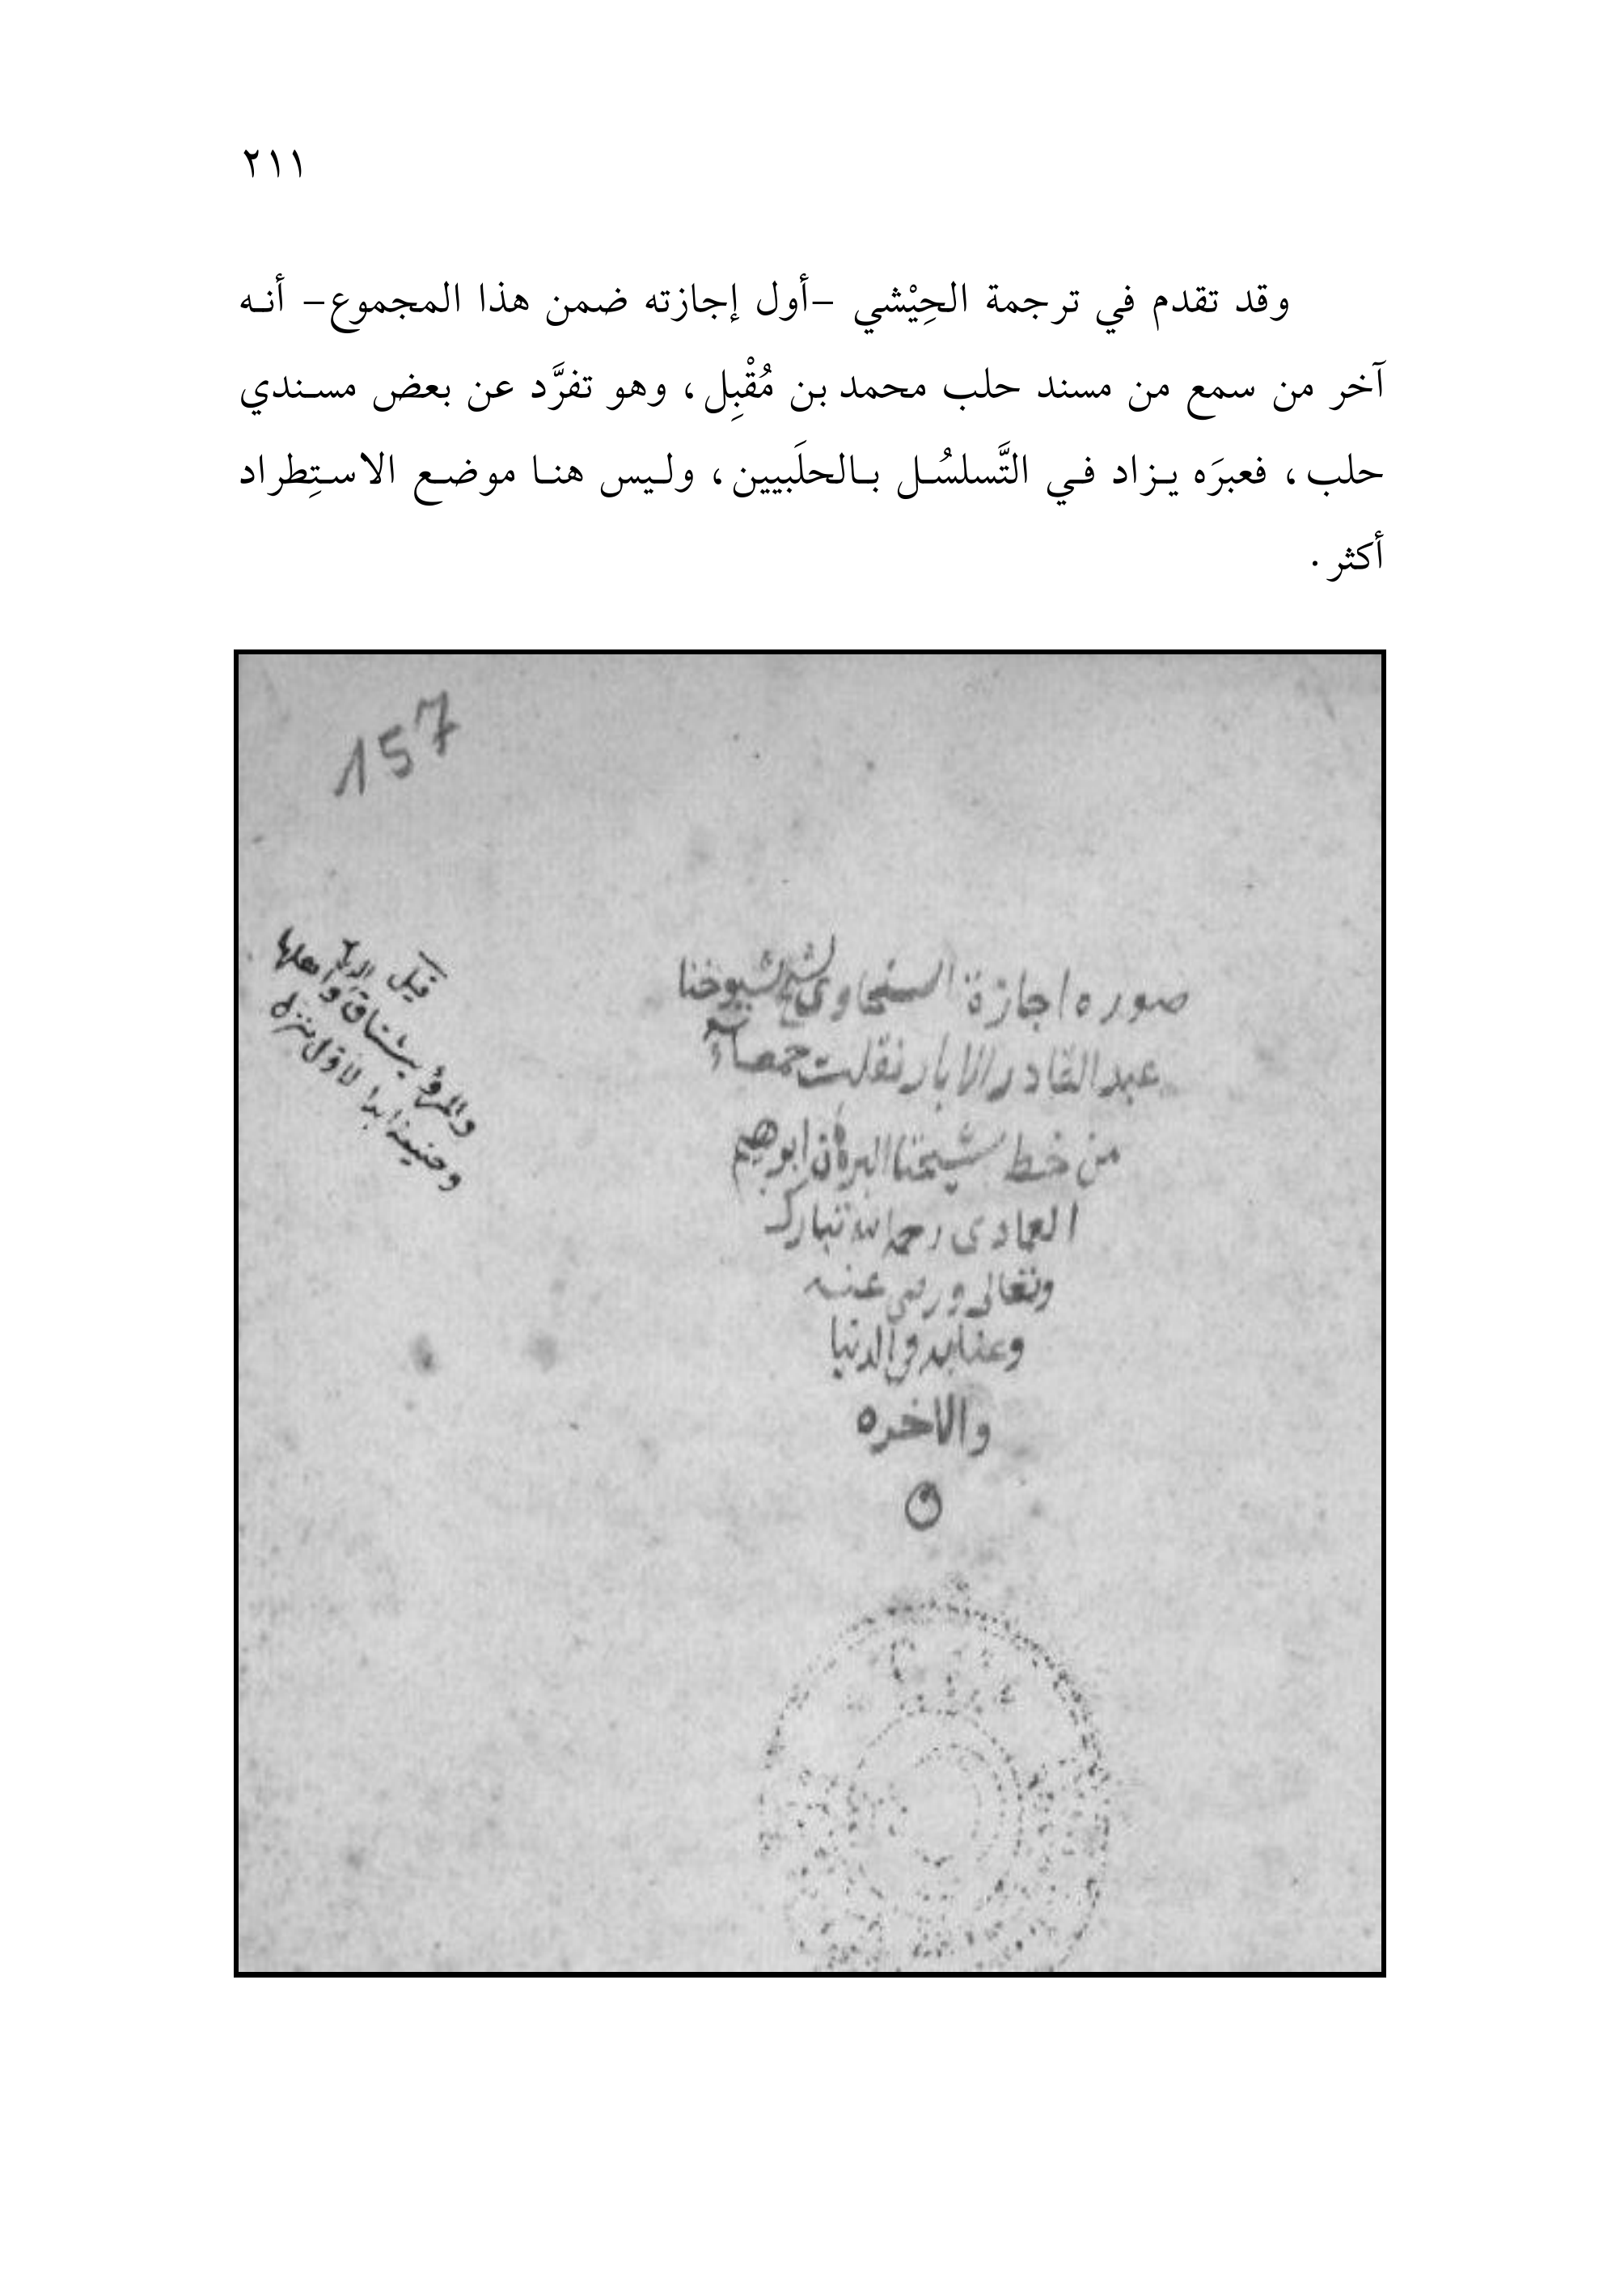 ٢١١
وقد تقدم في ترجمة الحِيْشي –أول إجازته ضمن هذا المجموع– أنه
آخر من سمع من مسند حلب محمد بن مُقْبِل، وهو تفرَّد عن بعض مسندي
حلب، فعبرَه يزاد في التَّسلسُل بالحلَبيين، وليس هنا موضع الاستِطراد
أكثر.
157
صوره اجازة السخاوى لشيخ شيوخنا
عبد القادر الابار نقلت
من خط شيخنا البرهان ابرهيم
العمادى رحمه الله تبارك
وتعالى ورضى عنه
وعنا به فى الدنيا
والاخره
قيل
يشتاق
وحنينه ابدا لاول منزل